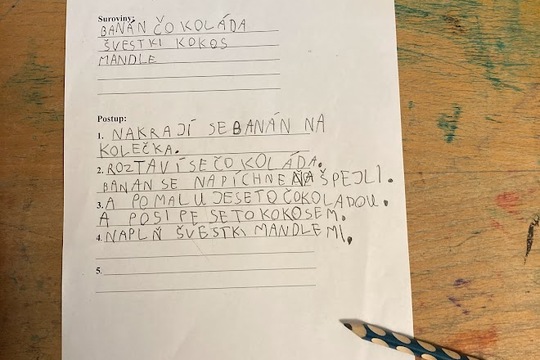 Suroviny:
BANÁN ČOKOLÁDA
ŠVESTKI KOKOS
MANDLE
Postup:
1. NAKRAJÍ SE BANÁN NA
KOLEČKA.
2. ROZTAVÍ SE ČOKOLÁDA.
BANAN SE NAPÍCHNE NA ŠPEJLI.
3. A POMALUJE SE TO ČOKOLADOU.
A POSIPE SE TO KOKOSEM.
4. NAPLŇ ŠVESTKI MANDLEMI.
5.